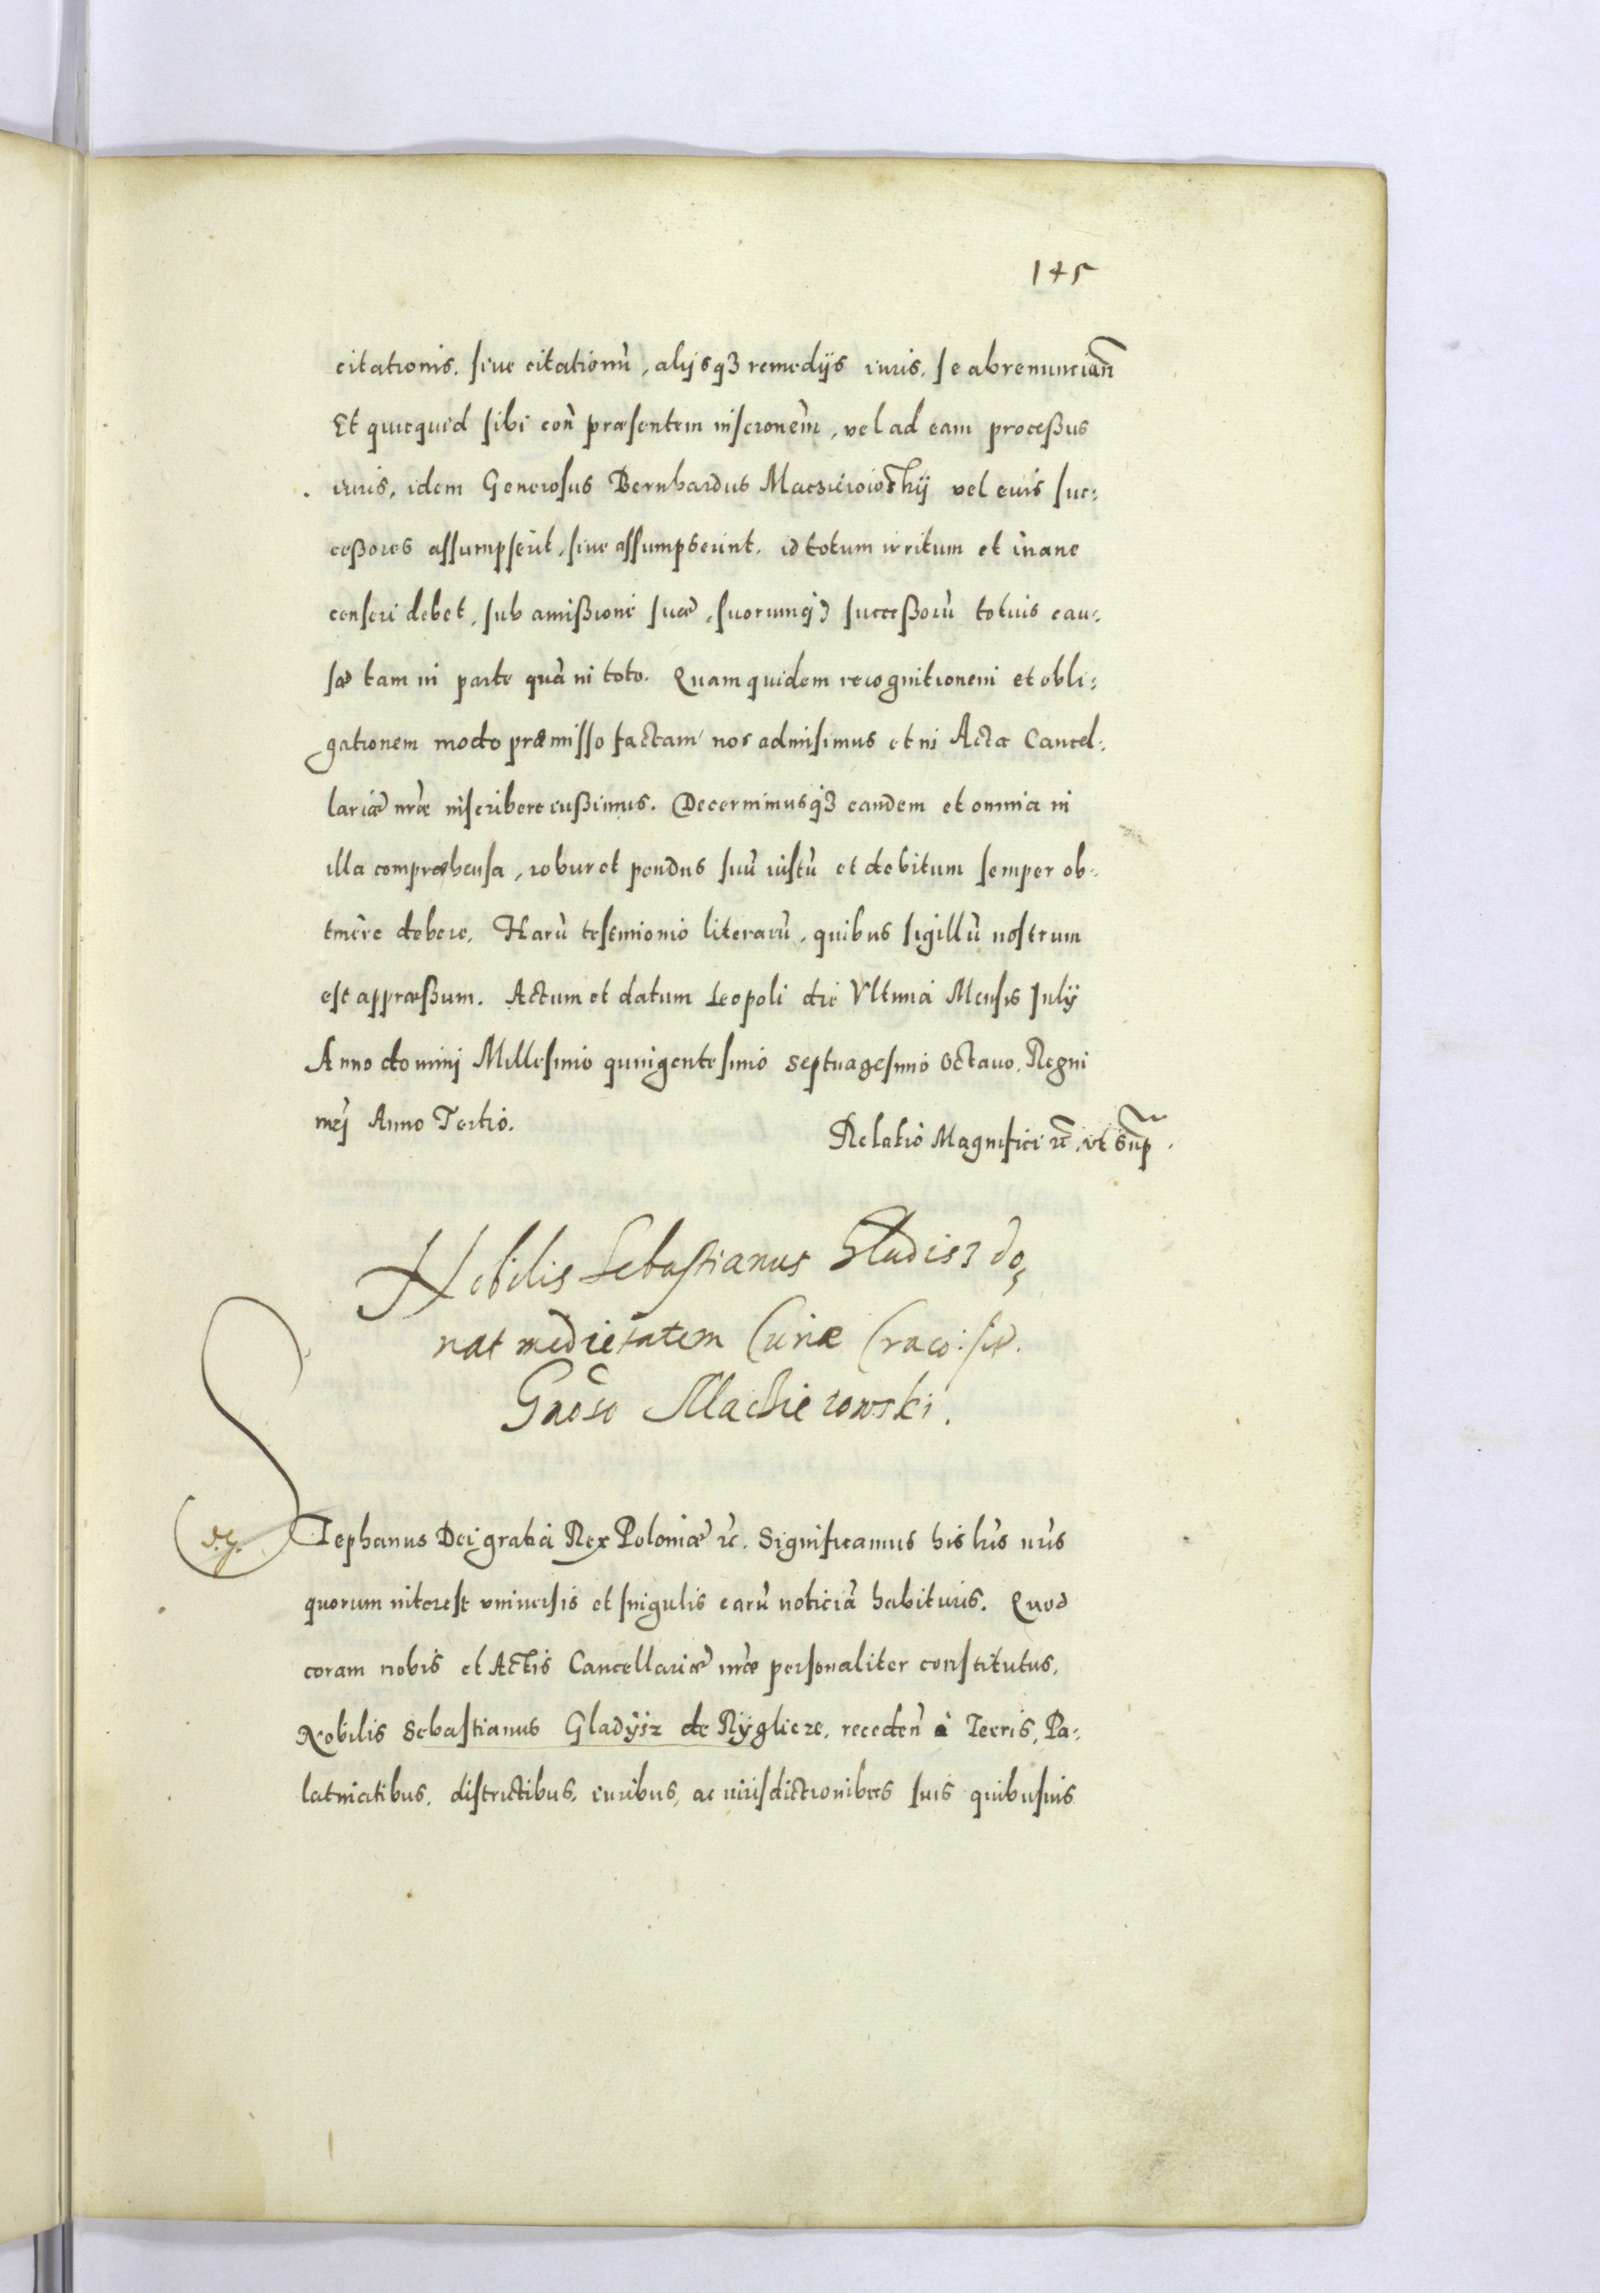 145
citationis. siue citationū, alijsq3 remedijs iuris. se abrenuncian̄
Et quicquid sibi con̄ præsentem inscronem̄, vel ad eam proceßus
iuris, idem Generosus Bernhardus Macziеiowskij vel eius suc:
ceßores assumpserit, siue assumpserint. id totum irritum et inane
censeri debet, sub amißione suæ, suorumq3 succeßorū totius cau:
sæ tam in parte quā in toto. Quam quidem recognitionem et obli:
gationem modo præmisso factam nos admisimus et in Acta Cancel:
lariæ nr̄æ inscribere iußimus. Decernimusq3 eandem et omnia in
illa compræhensa, robur et pondus suū iustū et debitum semper ob:
tinere debere. Harū testimonio literarū, quibus sigillū nostrum
est appræßum. Actum et datum Leopoli die Vltima Mensis Julij
Anno domini Millesimo quingentesimo septuagesimo octauo. Regni
nr̄i Anno Tertio.
Relatio Magnifici rc̄. vt sup̄.
Nobilis Sebastianus Gladisz do:
nat medietatem Curiæ Craco:
Gnōso Maczieiowski.
Stephanus Dei gratia Rex Poloniæ rc̄. Significamus his lr̄is nr̄is
quorum interest vniuersis et singulis earū noticiā habituris. Quod
coram nobis et Actis Cancellariæ nr̄æ personaliter constitutus,
Nobilis Sebastianus Gladÿsz de Rÿglicze, receden̄ à Terris, Pa:
latinatibus, districtibus, iuribus, ac iurisdictionibus suis quibusuis